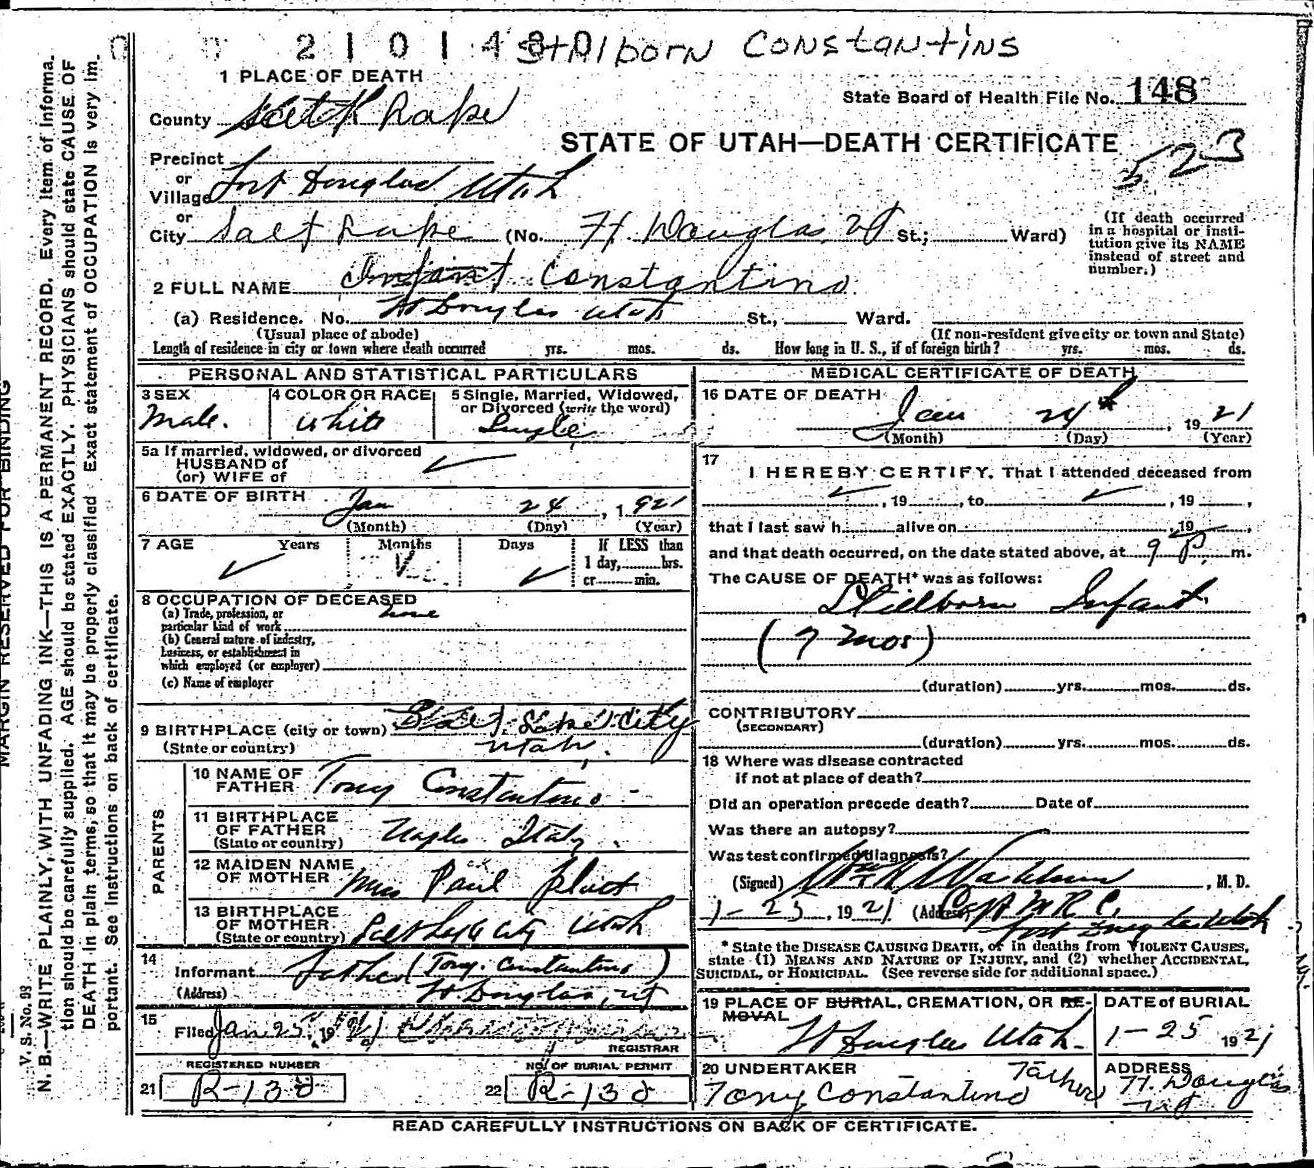 2 1 0 1 4 8 0 Stillborn Constantins
1 PLACE OF DEATH
State Board of Health File No. 148
County Salt Lake
STATE OF UTAH—DEATH CERTIFICATE
523
Precinct
or
Village Fort Douglas Utah
or
City Salt Lake (No. Ft. Douglas, Ut St.; Ward)
(If death occurred
in a hospital or insti-
tution give its NAME
instead of street and
number.)
2 FULL NAME Infant Constantino
(a) Residence. No. Ft Douglas Utah St., Ward.
(Usual place of abode) (If non-resident give city or town and State)
Length of residence in city or town where death occurred yrs. mos. ds. How long in U. S., if of foreign birth? yrs. mos. ds.
PERSONAL AND STATISTICAL PARTICULARS
3 SEX
Male.
4 COLOR OR RACE
White
5 Single, Married, Widowed,
or Divorced (write the word)
Single
5a If married, widowed, or divorced
HUSBAND of
(or) WIFE of
6 DATE OF BIRTH Jan 24, 1921
(Month) (Day) (Year)
7 AGE Years Months Days If LESS than
1 day, hrs.
or min.
8 OCCUPATION OF DECEASED
(a) Trade, profession, or
particular kind of work none
(b) General nature of industry,
business, or establishment in
which employed (or employer)
(c) Name of employer
9 BIRTHPLACE (city or town) Salt Lake City
(State or country) Utah.
PARENTS
10 NAME OF
FATHER Tony Constantino
11 BIRTHPLACE
OF FATHER
(State or country) Naples Italy.
12 MAIDEN NAME
OF MOTHER Miss Paul
13 BIRTHPLACE
OF MOTHER
(State or country) Salt Lake City Utah
14
Informant Father (Tony Constantino)
(Address) Ft Douglas, Ut
15
Filed Jan 25, 1921
REGISTRAR
REGISTERED NUMBER
21 R-138
NO. OF BURIAL PERMIT
22 R-138
MEDICAL CERTIFICATE OF DEATH
16 DATE OF DEATH
Jan 24th, 1921
(Month) (Day) (Year)
17
I HEREBY CERTIFY, That I attended deceased from
, 19 , to , 19 ,
that I last saw h alive on , 19
and that death occurred, on the date stated above, at 9 P. m.
The CAUSE OF DEATH* was as follows:
Stillborn Infant
(7 mos)
(duration) yrs. mos. ds.
CONTRIBUTORY
(SECONDARY)
(duration) yrs. mos. ds.
18 Where was disease contracted
if not at place of death?
Did an operation precede death? Date of
Was there an autopsy?
Was test confirmed diagnosis?
(Signed) , M. D.
1-25, 1921 (Address) Capt M R C.
Fort Douglas Utah
* State the DISEASE CAUSING DEATH, or in deaths from VIOLENT CAUSES,
state (1) MEANS AND NATURE OF INJURY, and (2) whether ACCIDENTAL,
SUICIDAL, or HOMICIDAL. (See reverse side for additional space.)
19 PLACE OF BURIAL, CREMATION, OR RE-
MOVAL
Ft Douglas Utah.
DATE of BURIAL
1-25 1921
20 UNDERTAKER
Tony Constantino Father
ADDRESS
Ft. Douglas
Ut
READ CAREFULLY INSTRUCTIONS ON BACK OF CERTIFICATE.
MARGIN RESERVED FOR BINDING
V. S. No. 98.
N. B.—WRITE PLAINLY, WITH UNFADING INK—THIS IS A PERMANENT RECORD. Every item of informa-
tion should be carefully supplied. AGE should be stated EXACTLY. PHYSICIANS should state CAUSE OF
DEATH in plain terms, so that it may be properly classified. Exact statement of OCCUPATION is very im-
portant. See instructions on back of certificate.